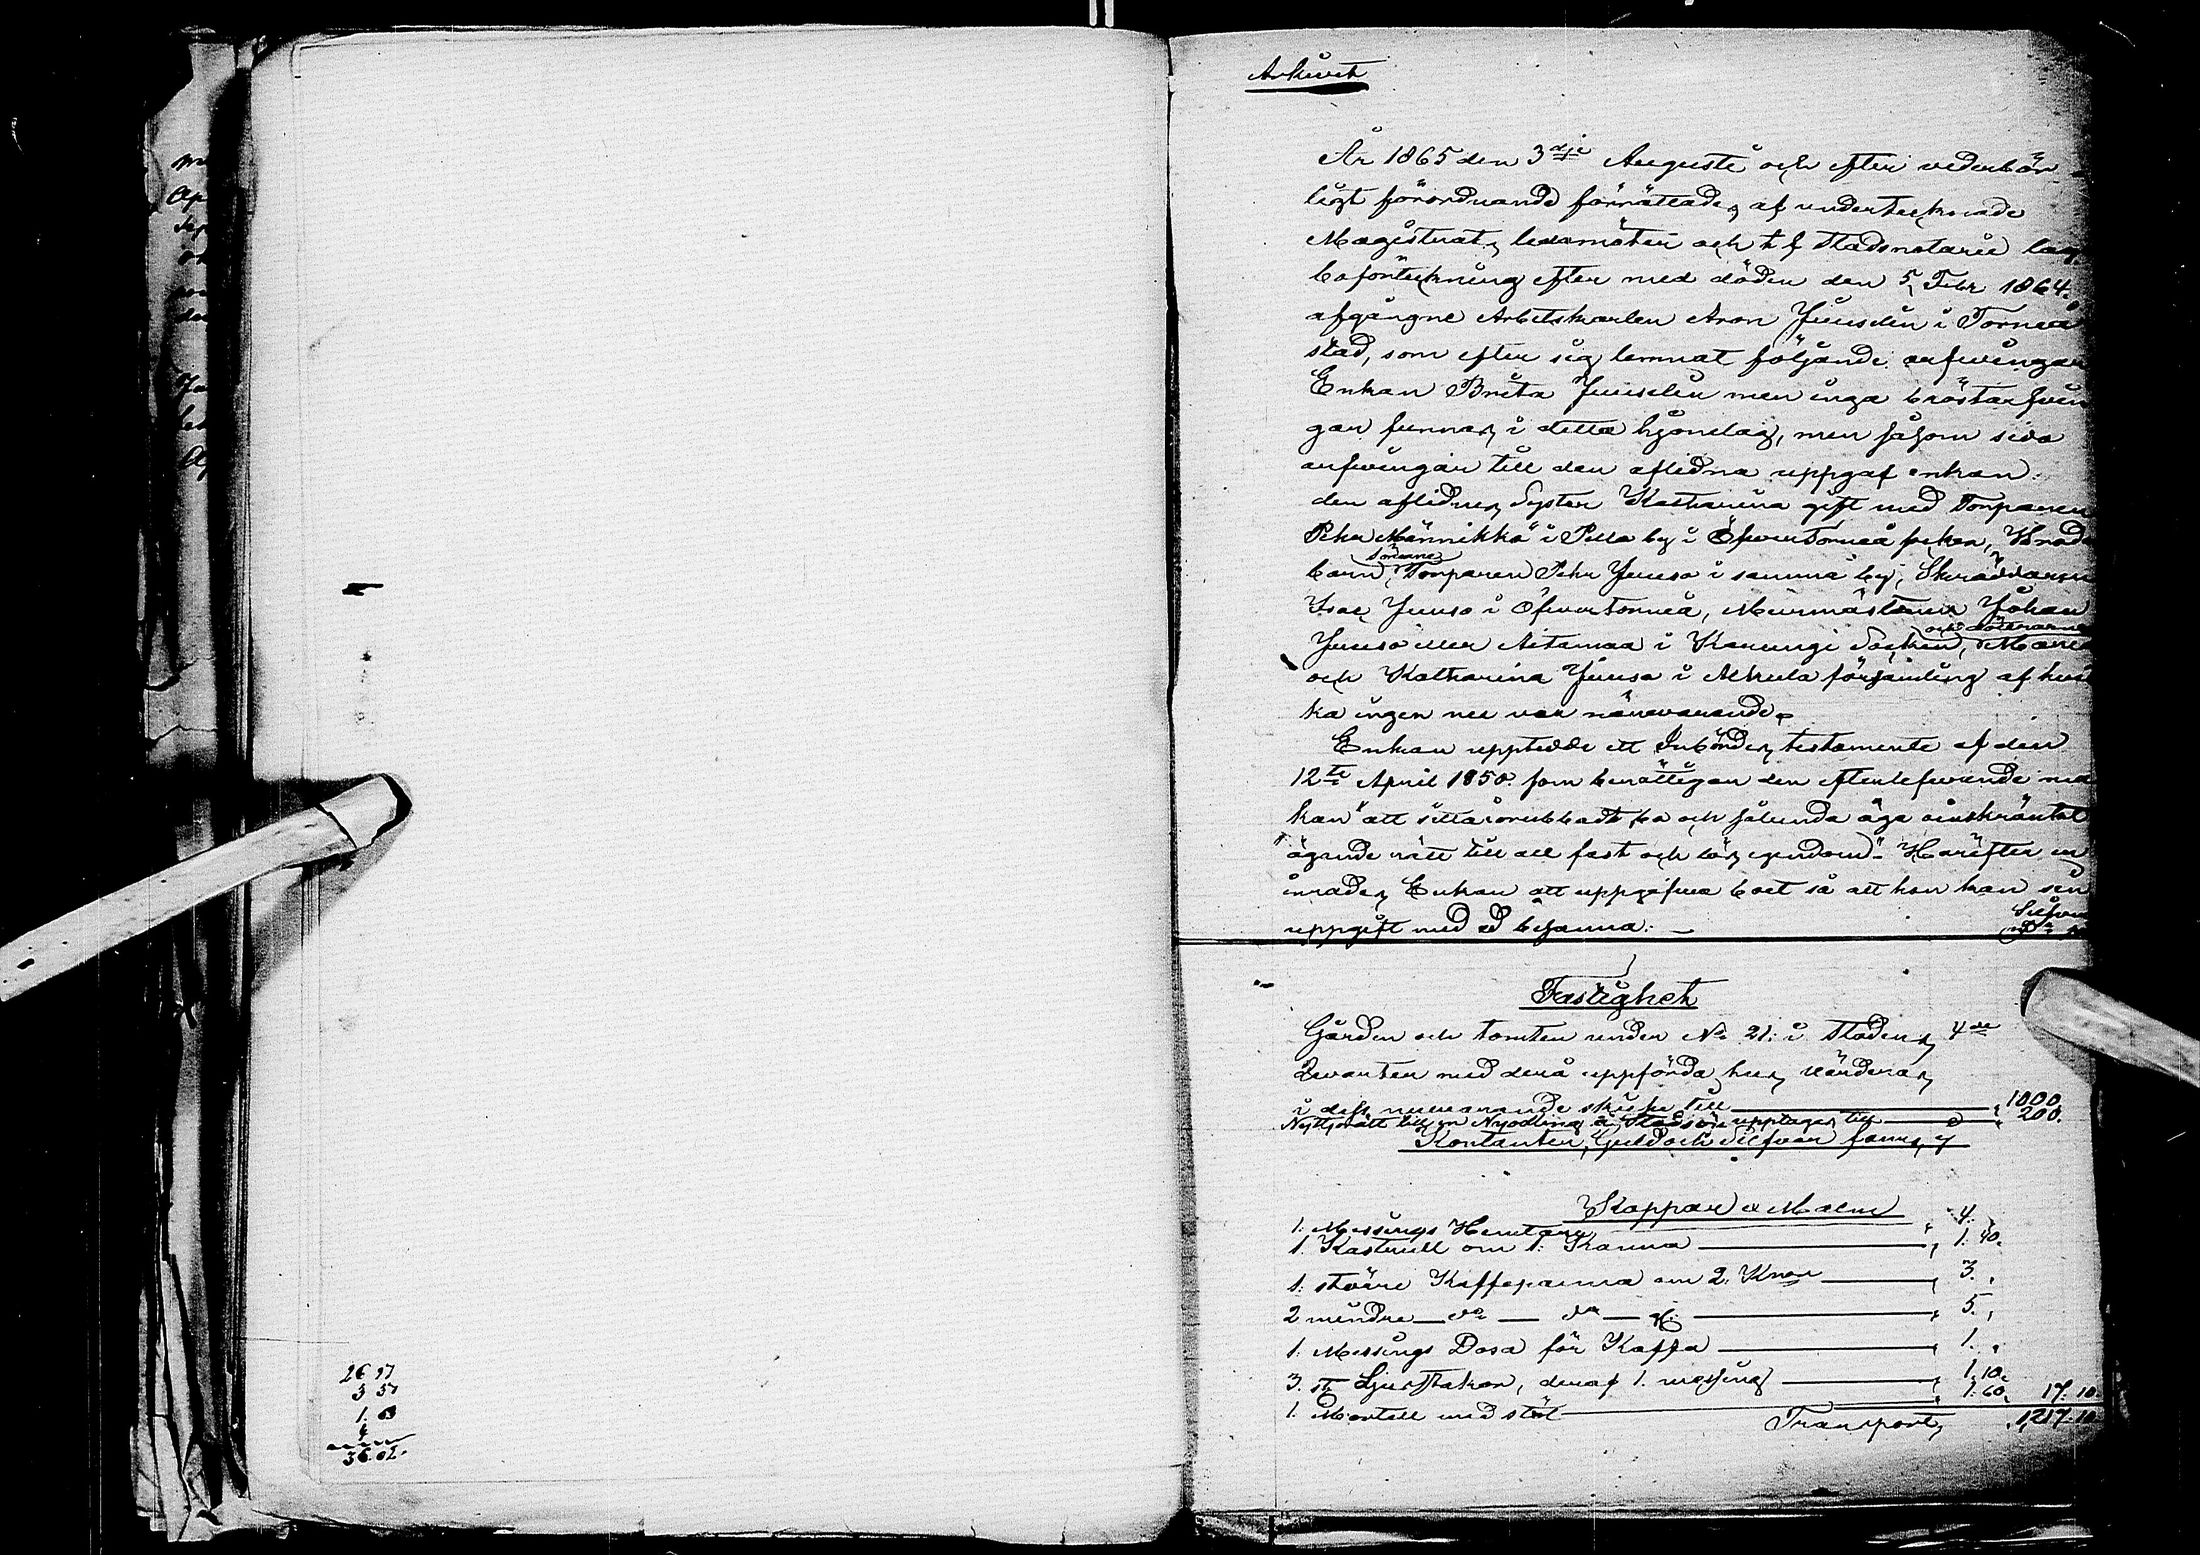 Arkivet
År 1865 den 3dje Augusti och efter vederbör
ligt förordnande förrättades af undertecknade
Magistrats ledamöter och t f Stadsnotarie lag.
boförteckning efter med döden den 5 Febr 1864.
afgångne Arbetskarlen Aron Juuselin i Torneå
stad, som efter sig lemnat följande arfvingar
Enkan Brita Juuselin men inga bröstarfvin
gar funnas i detta hjonelag, men såsom sido
arfvingar till den aflidna uppgaf enkan:
den aflidnes Syster Katharina gift med Torparen
Pehr Männikkö i Pello by i Öfvertorneå socken, Brods
sönerna
barn, Torparen Pehr Juuso i samma by, Skräddaren
Isac Juuso i Öfvertorneå, Murmästaren Johan
och döttrarna
Juuso eller Aitamaa i Karungi Socken, Maria
och Katharina Juuso i Alkula församling af hvil
ka ingen nu var närvarande.
Enkan upptedde ett Inbördes testamente af den
12te April 1850. som berättigar den efterlefvande ma
kan "att sitta orubbadt bo och sålunda äga oinskränkt
"ägande rätt till all fast och lös egendom". Härefter
Enkan att uppgifva boet så att hon kan sin
uppgift med ed besanna. —
Silfver
Fastighet
Gården och tomten under No 21. i Stadens 4de
Qvarter med derå uppförda hus värderas
i dess nuvarande skick till — 1000
Nyttjorätt till en Nyodling å Stadsön upptages till — 200.
Kontanter, Guld och Silfver fanns ej
Koppar & Malm
1. Messings — 4.
1. Kastrull om 1. Kanna — 1. 40.
1. större Kaffepanna om 2. Knor — 3. "
2 mindre — do — do — — 5. "
1. Messings Dosa för Kaffa — 1. "
3. st Ljusstakar, deraf 1. messing — 1. 10.
1. Mortell med stöt — 1. 60. 17. 10.
Transport, 1,217. 10
26 97
3 57
1. 63
36. 02.